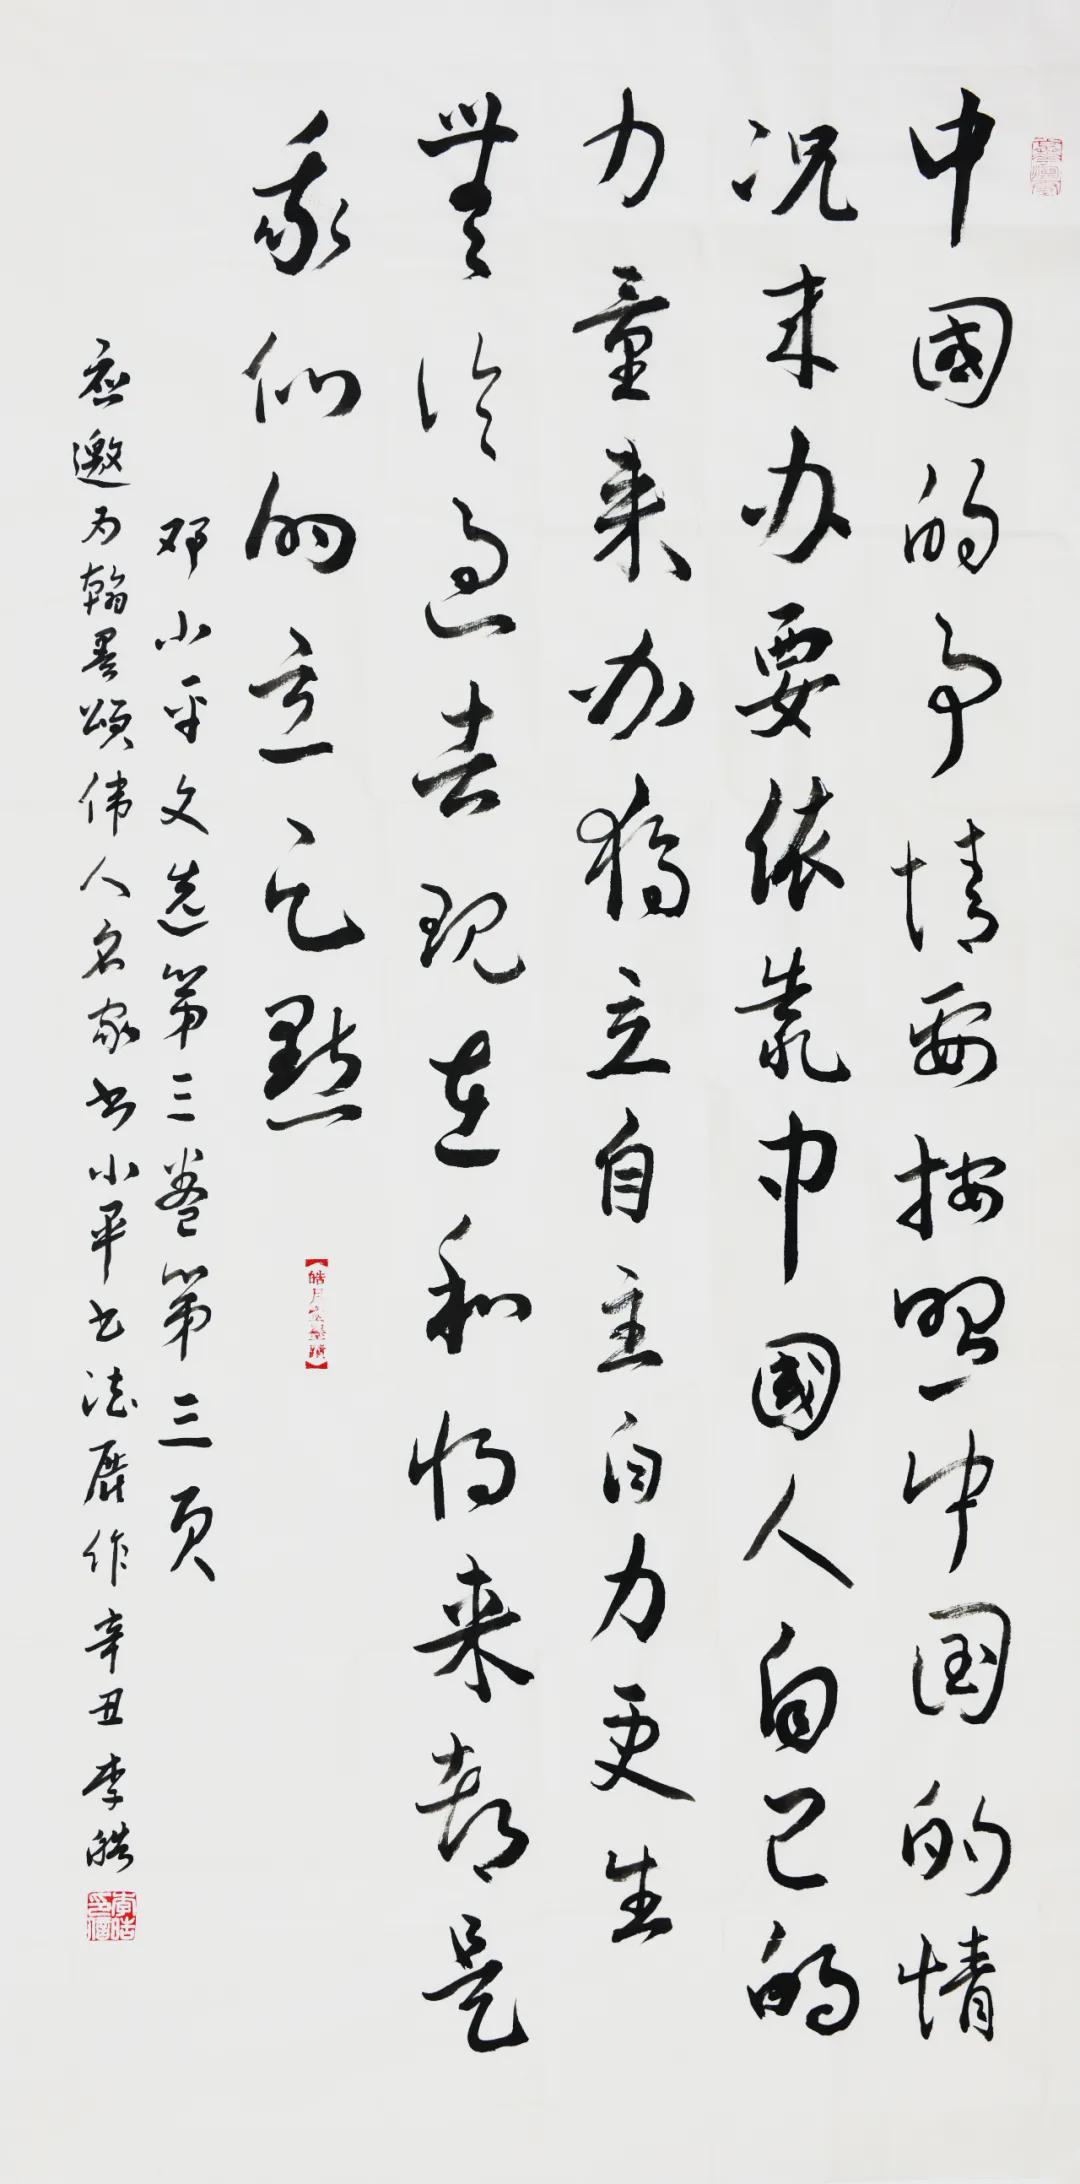 中國的事情要按照中国的情
况来办要依靠中國人自己的
力量来办獨立自主自力更生
無论过去现在和将来都是
我们的立足點
邓小平文选第三卷第三页
应邀为翰墨颂伟人名家书小平书法展作辛丑李皓